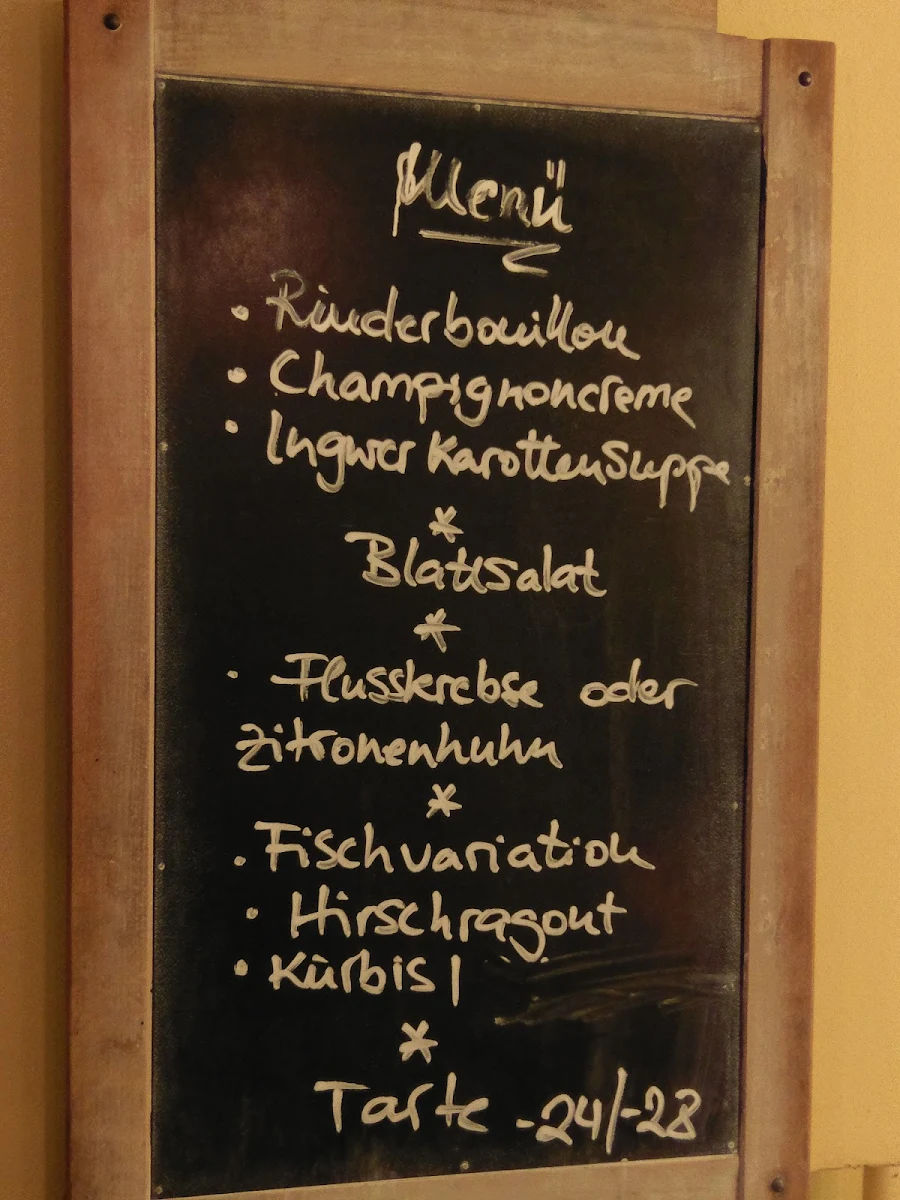 Menü
• Rinderbouillon
• Champignoncreme
• Ingwer Karottensuppe
*
Blattsalat
*
• Flusskrebse oder
Zitronenhuhn
*
• Fischvariation
• Hirschragout
• Kürbis |
*
Tarte -24/-28